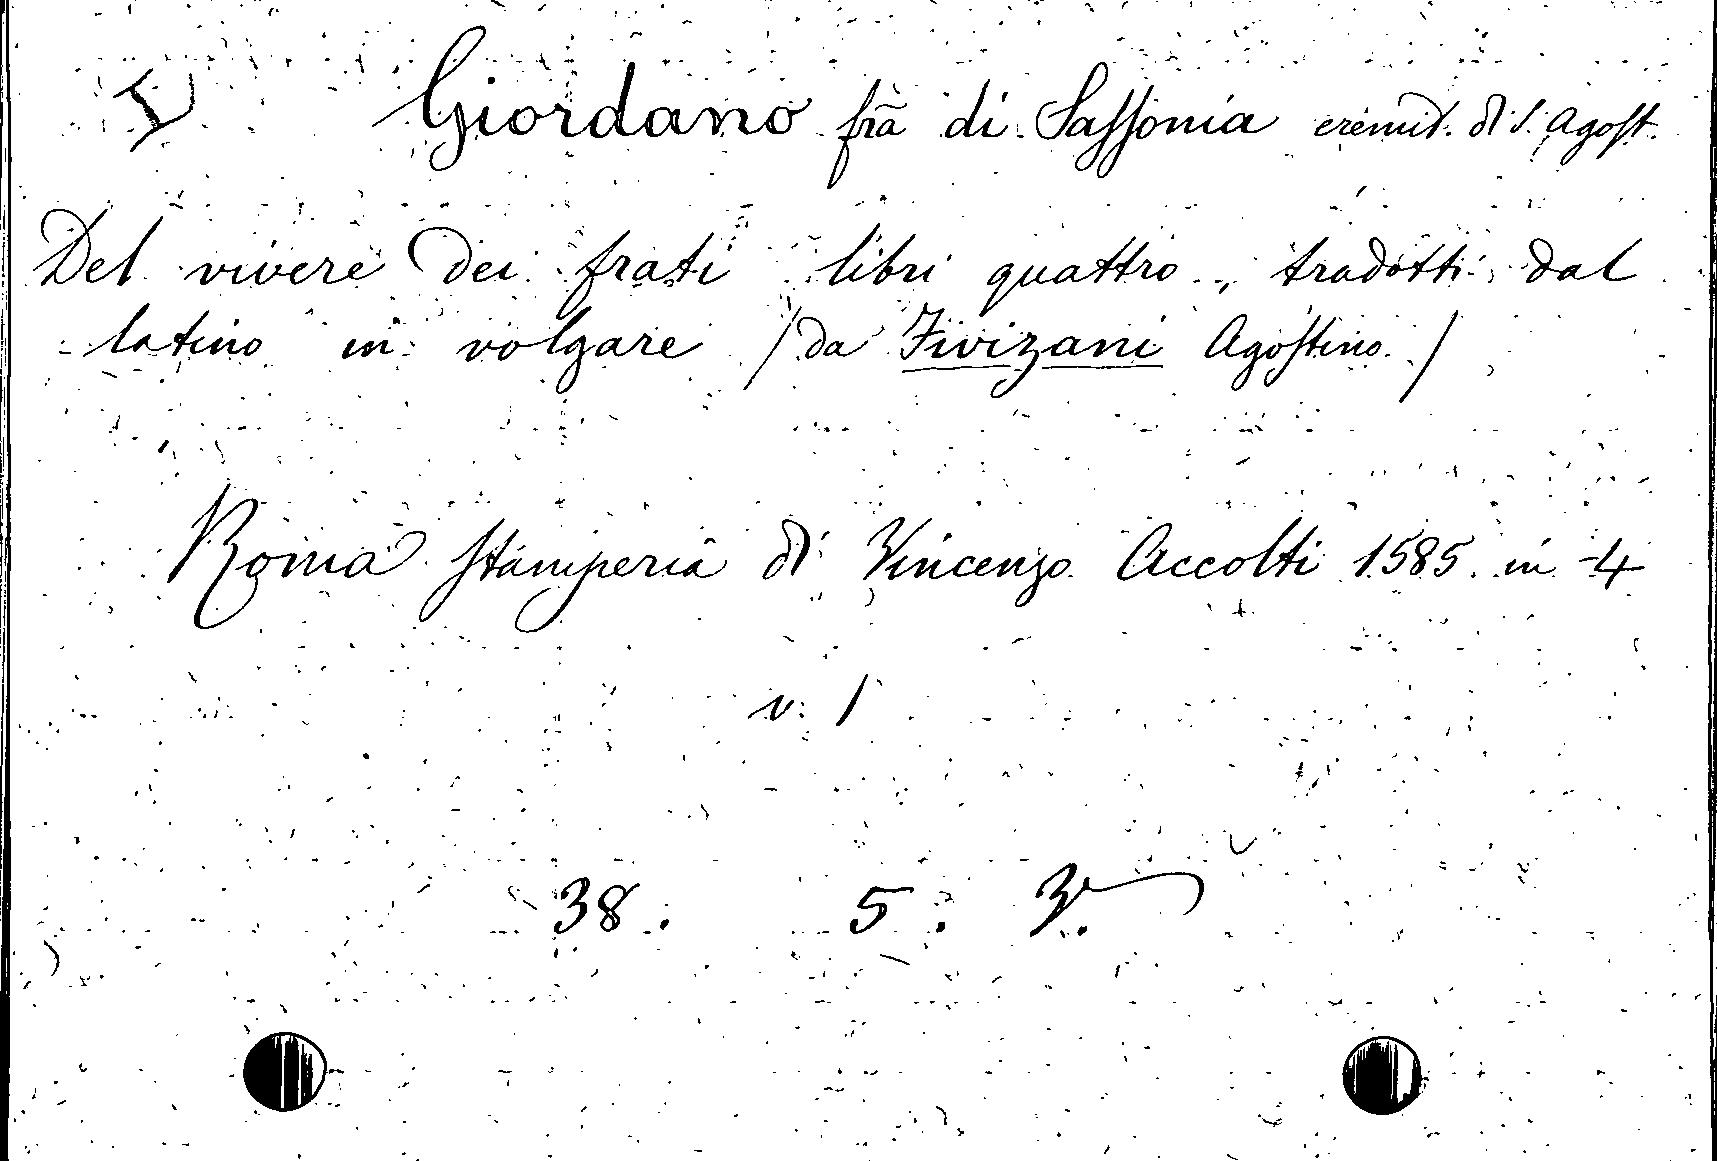 Giordano frà di Sassonia eremit. di S. Agost.
Del vivere dei frati libri quattro, tradotti dal
latino in volgare /da Fivizani Agostino./
Roma Stamperia di Vincenzo Accolti 1585. in -4
v. 1
38. 5.